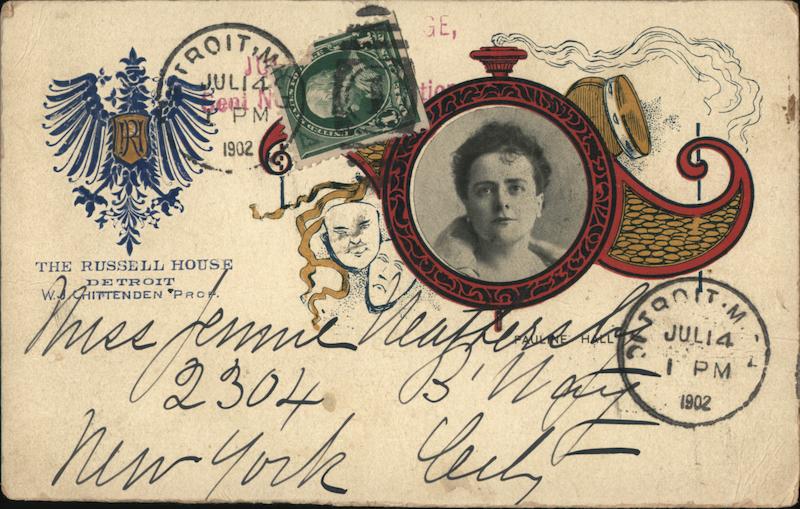 DETROIT, M
JUL 14
1 PM
1902
GE,
THE RUSSELL HOUSE
DETROIT
W.J. CHITTENDEN PROP.
PAULINE HALL
Miss Jennie
2304 B'Way
New York City
DETROIT, M
JUL 14
1 PM
1902